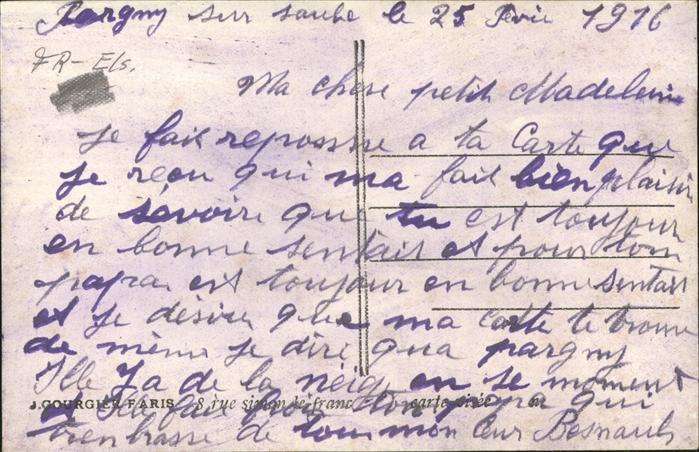 Pargny sur saube le 25 Fevie 1916
FR - Els.
Ma chere petit Madeleine
je fait reponsse a ta Carte que
je reçu qui ma fait bien plaisir
de savoire que tu est toujour
en bonne sentait et pour tom
papa est toujour en bonne sentait
et je désire que ma carte te trouve
de même je dire qua pargny
Ille Ja de la neige en se moment
J. GOURGIER PARIS 8 rue simon le franc carte
papa qui
t'embrasse de tout mon cœur Besnault